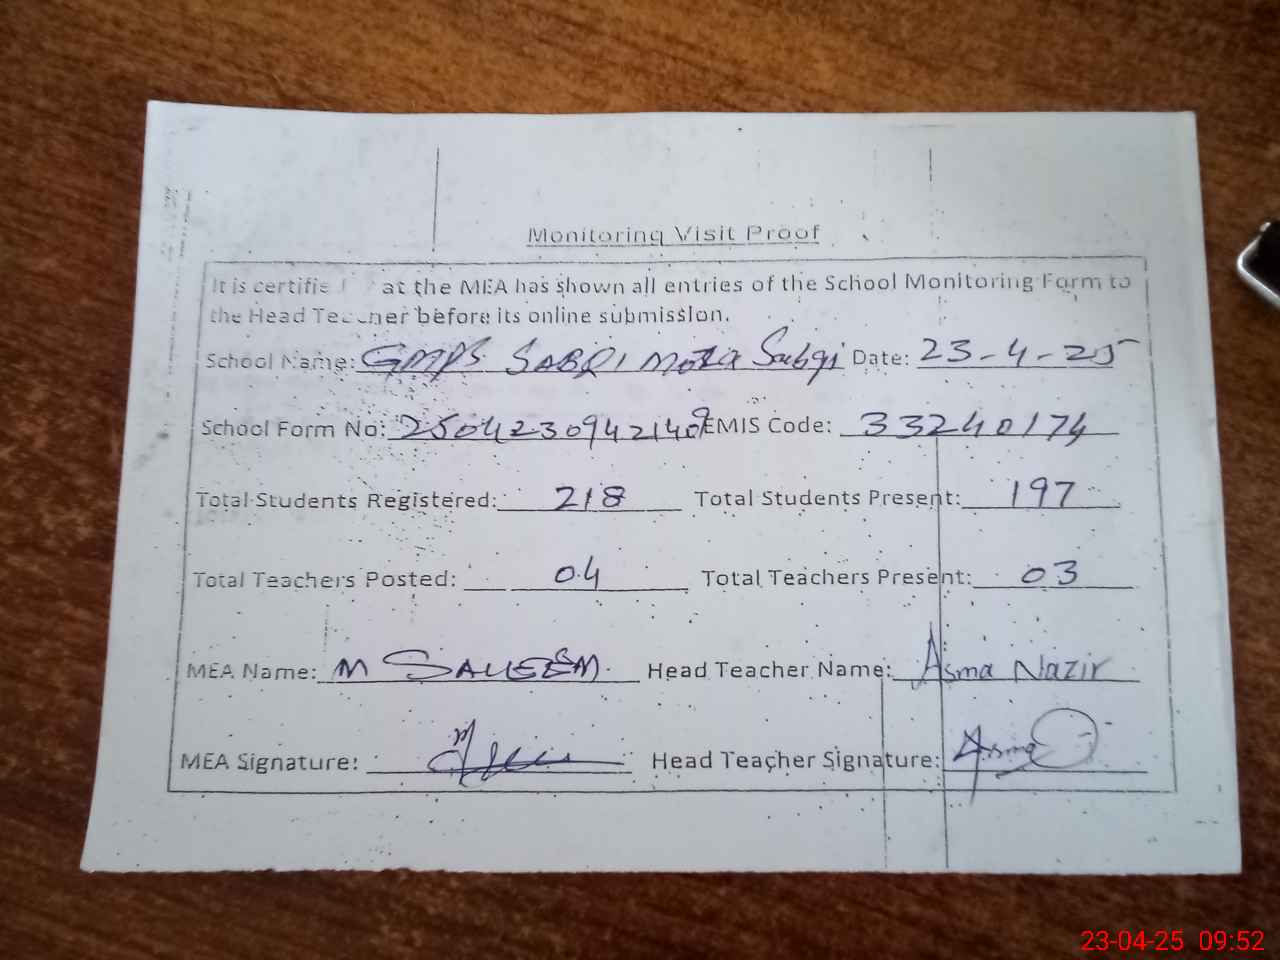 Monitoring Visit Proof
It is certifie at the MEA has shown all entries of the School Monitoring Form to
the Head Teacher before its online submission.
School Name: GMPS SABQI Moza Sabqi Date: 23-4-25
School Form No: 25042309421409 EMIS Code: 33240174
Total Students Registered: 218 Total Students Present: 197
Total Teachers Posted: 04 Total Teachers Present: 03
MEA Name: M SALEEM. Head Teacher Name: Asma Nazir
MEA Signature: Head Teacher Signature: Asma
23-04-25 09:52